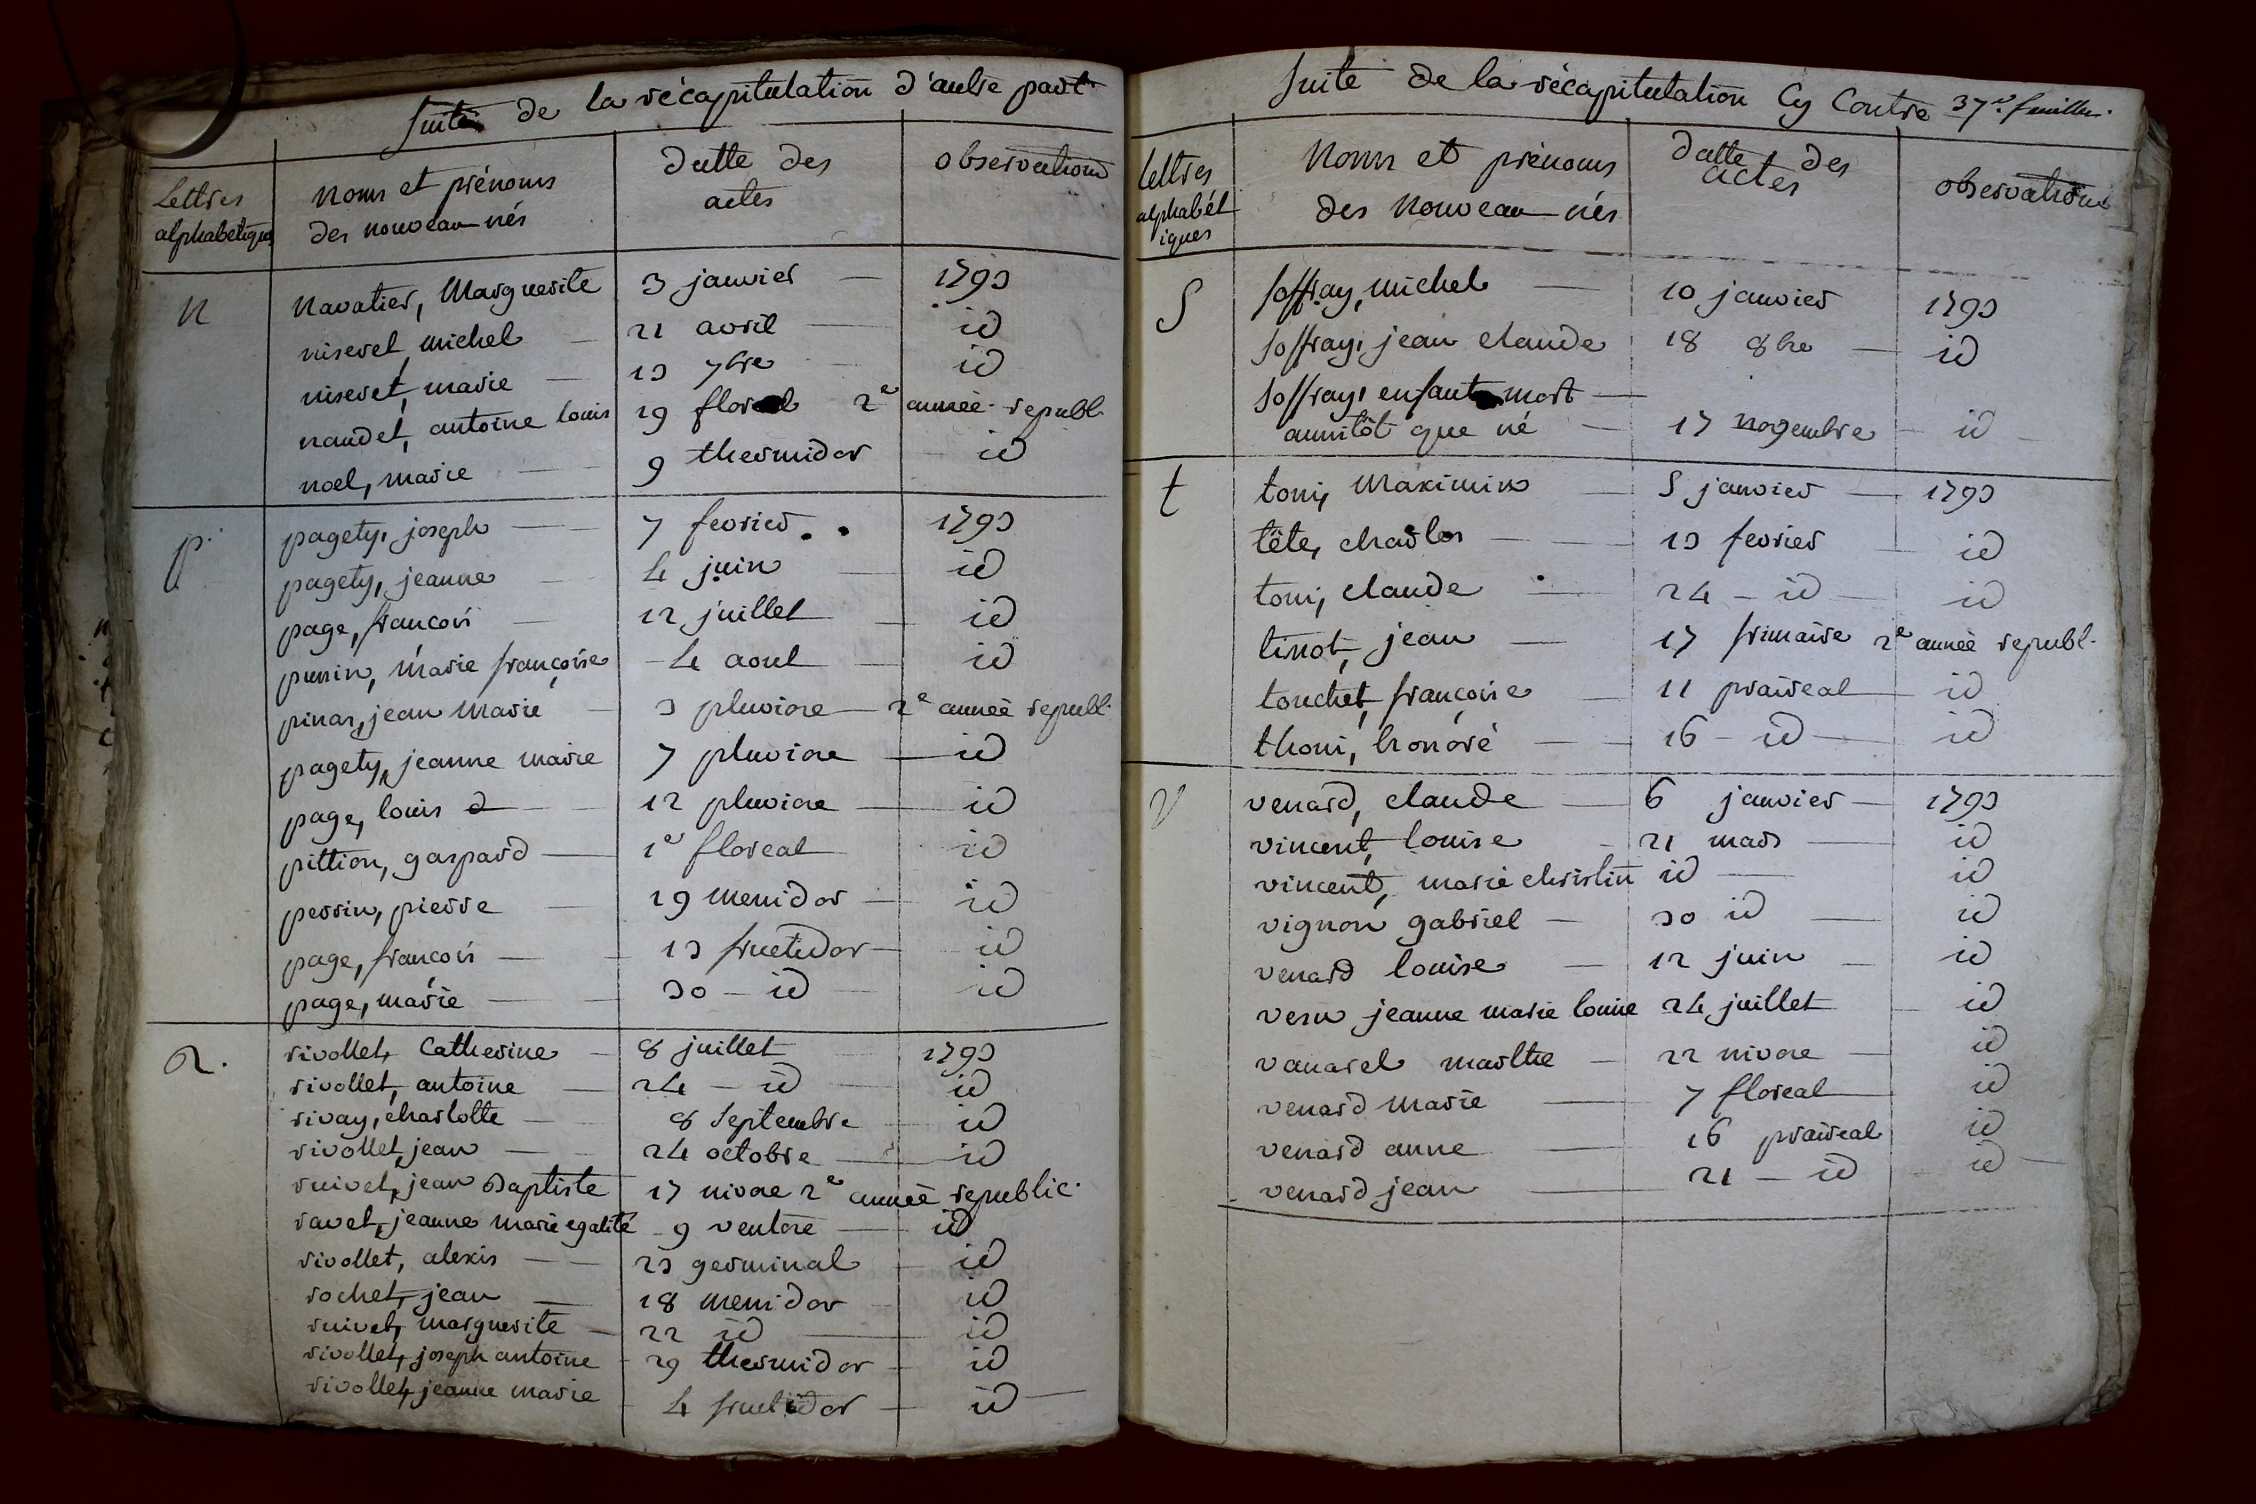 Suite de la récapitulation d'autre part
Lettres alphabetiques | noms et prénoms des nouveau nés | datte des actes | observations
n | navatier, Marguerite | 3 janvier — | 1793
niseret, michel — | 21 avril — | id
niseret, marie — | 13 7bre — | id
naudet, antoine louis | 19 floreal 2e année republ.
noel, marie — | 9 thermidor — | id
p. | pagety, joseph — | 7 fevrier | 1793
pagety, jeanne — | 4 juin — | id
page, francois — | 12 juillet — | id
punin, marie françoise | 4 aout — | id
pinas, jean marie — | 3 pluviose — 2e année republ.
pagety, jeanne marie | 7 pluviose — | id
page, louis — | 12 pluviose — | id
pittion, gaspard — | 1er floreal — | id
perrin, pierre — | 19 messidor — | id
page, francois — | 13 fructidor — | id
page, marie — | 30 — id — | id
r. | rivollet, Catherine — | 8 juillet | 1793
rivollet, antoine — | 24 — id — | id
rivay, charlotte — | 8 septembre — | id
rivollet, jean — | 24 octobre — | id
ruivet, jean Baptiste | 17 nivose 2e année republic.
ravet, jeanne marie egalité | 9 ventose — | id
rivollet, alexis — | 23 germinal — | id
rochet, jean — | 18 messidor — | id
ruivet, marguerite — | 22 id — | id
rivollet, joseph antoine | 29 thermidor — | id
rivollet, jeanne marie | 4 fructidor — | id —
Suite de la récapitulation Cy Contre 37e. feuillet.
lettres alphabét iques | Noms et prénoms des Nouveau nés | datte des actes | observations
S | soffray, michel — | 10 janvier | 1793
soffray, jean claude | 18 8bre — | id
soffray, enfant mort —
aussitôt que né — | 17 novembre — | id
t | toni, Maximin — | 5 janvier — | 1793
tête, charles — | 13 fevrier — | id
toni, claude — | 24 — id — | id
tissot, jean — | 17 frimaire 2e année republ.
touchet, françoise — | 11 praireal — | id
thoni, honoré — | 16 — id — | id
V | venard, claude — | 6 janvier — | 1793
vincent, louise — | 21 mars — | id
vincent, marie christin | id — | id
vignon gabriel — | 30 id — | id
venard louise — | 12 juin — | id
jeanne marie louise | 24 juillet — | id
vanarel marthe — | 22 nivose — | id
venard marie — | 7 floreal — | id
venard anne — | 16 praireal | id
venard jean — | 21 — id — | id —